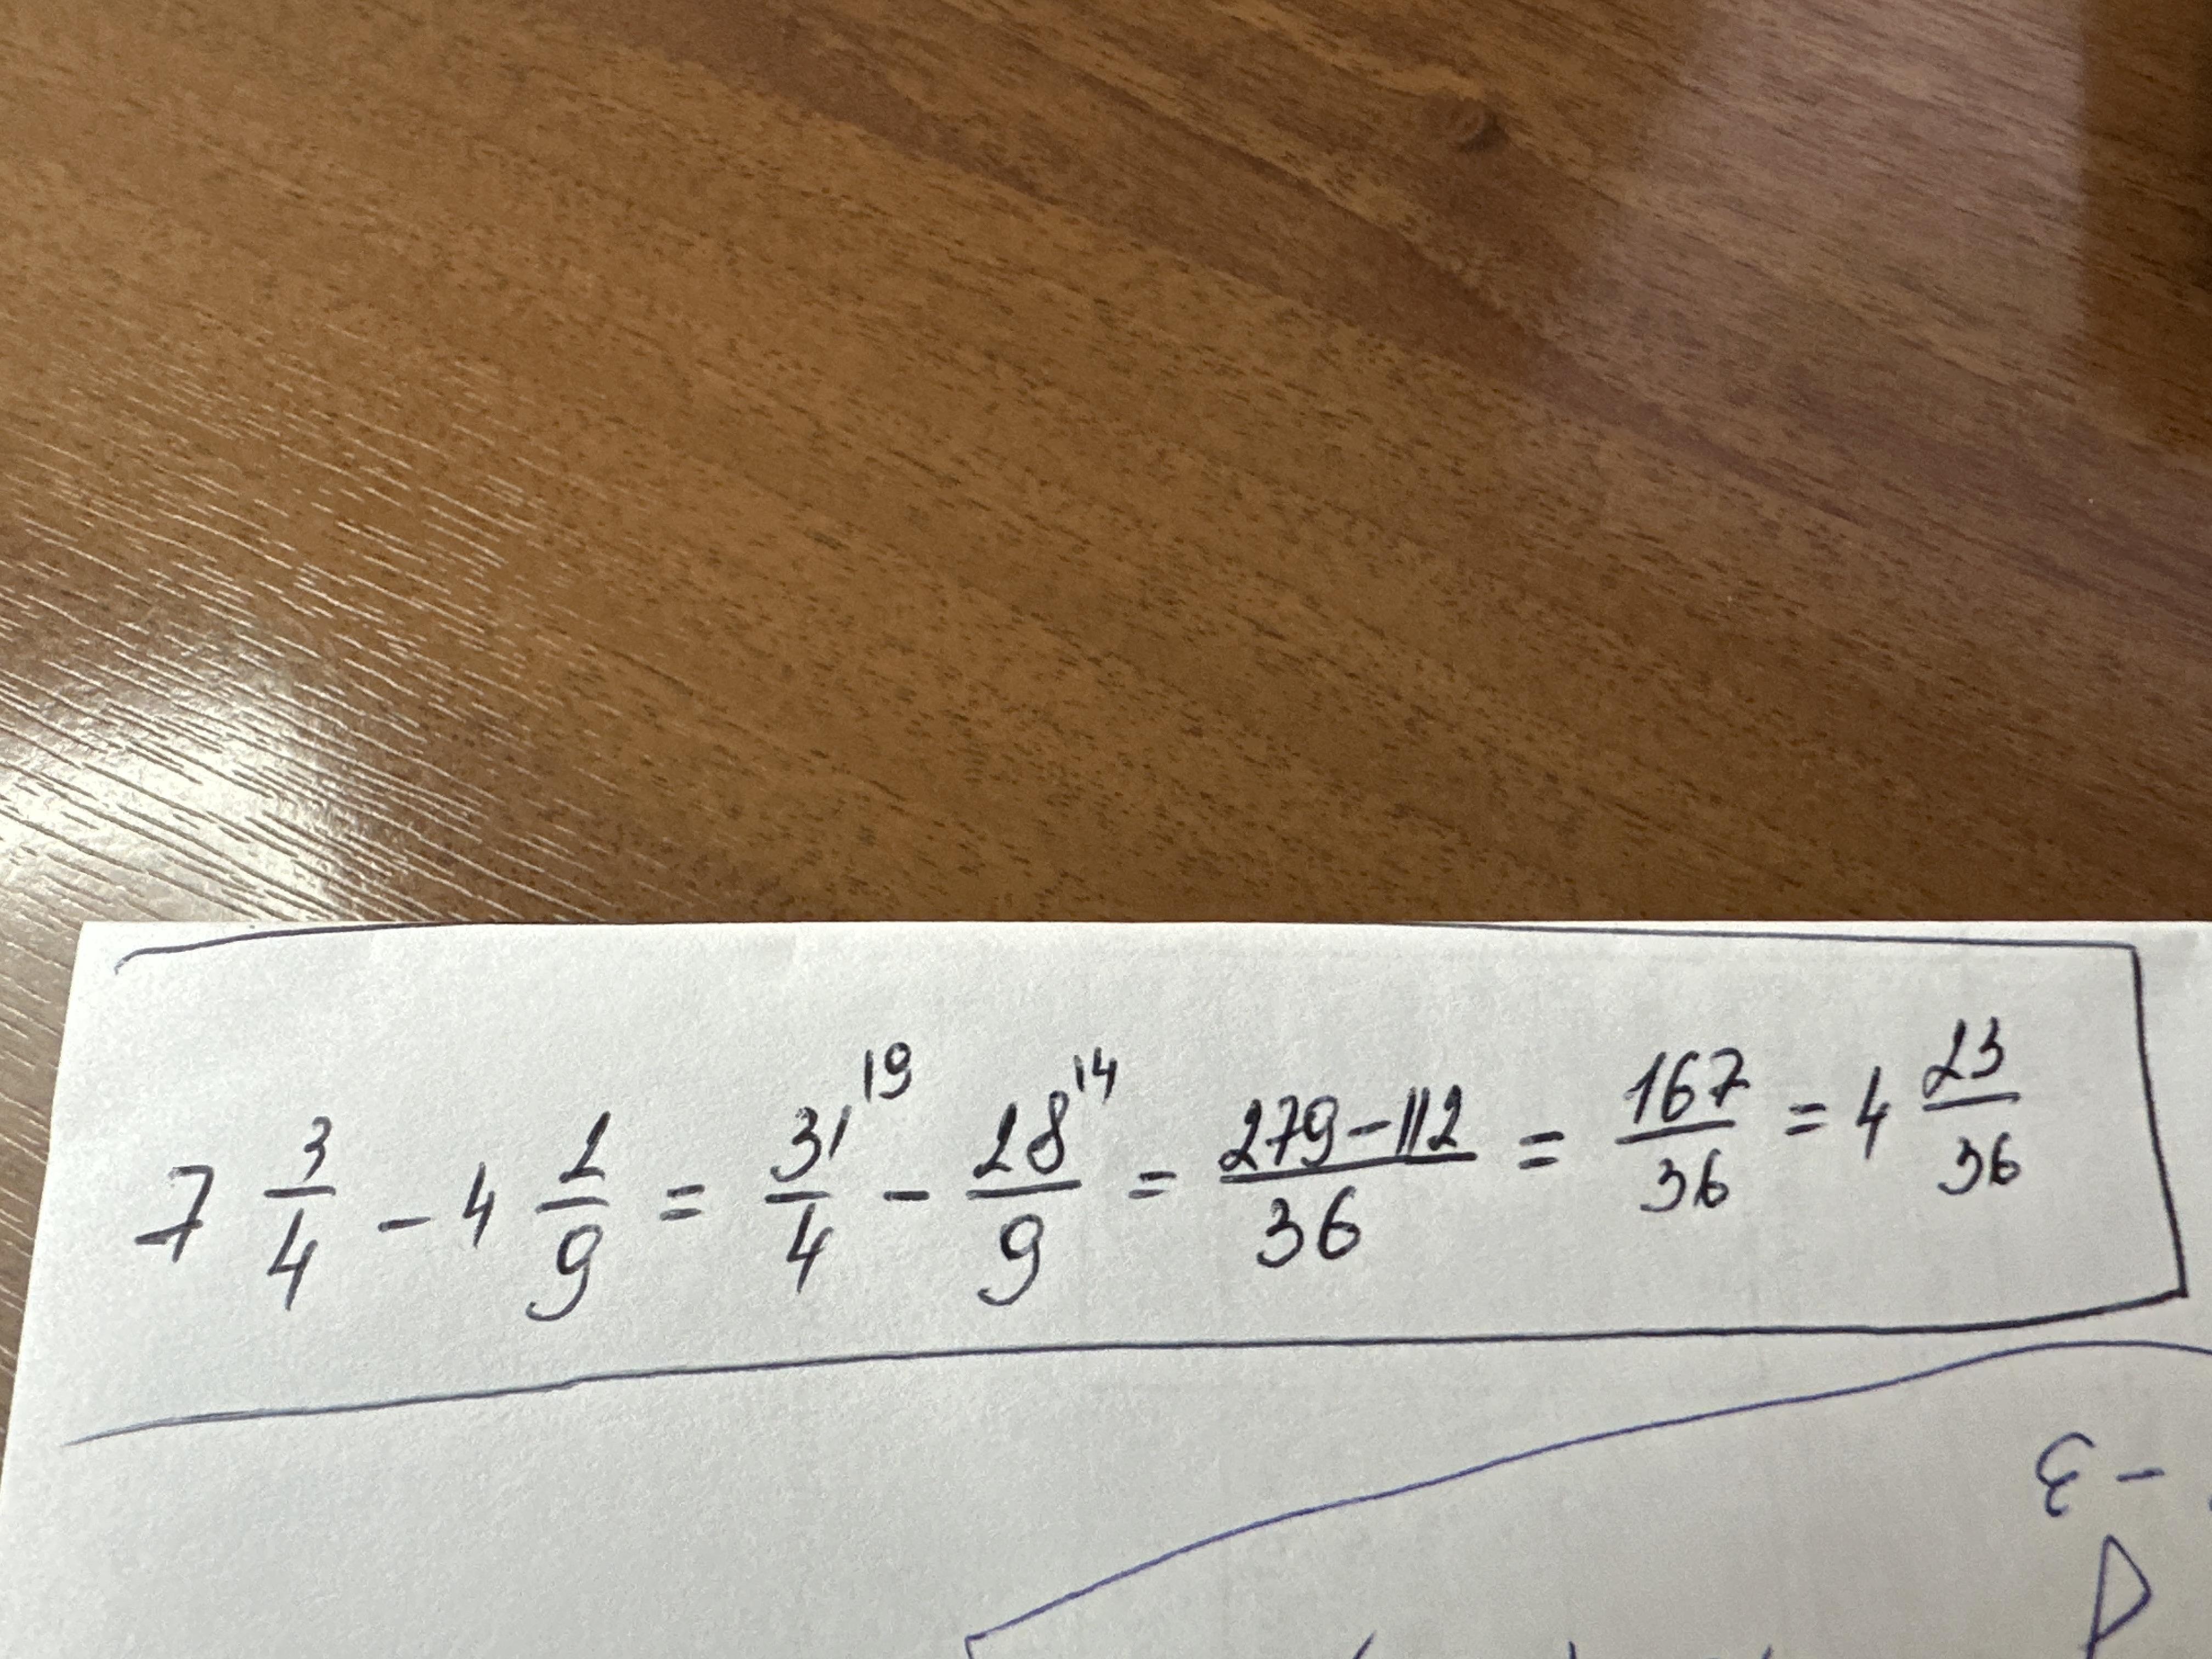 7 3/4 - 4 2/9 = 31/4 |9 - 28/9 |4 = 279-112/36 = 167/36 = 4 23/36